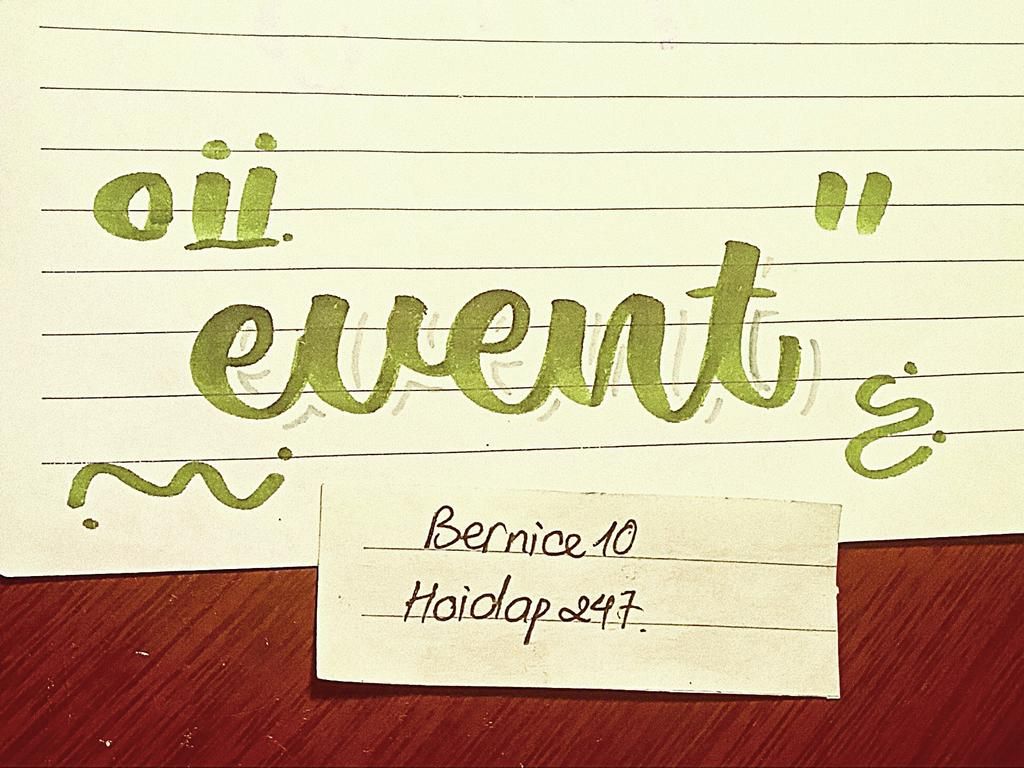 "
event
Bernice 10
Hoidap 247.